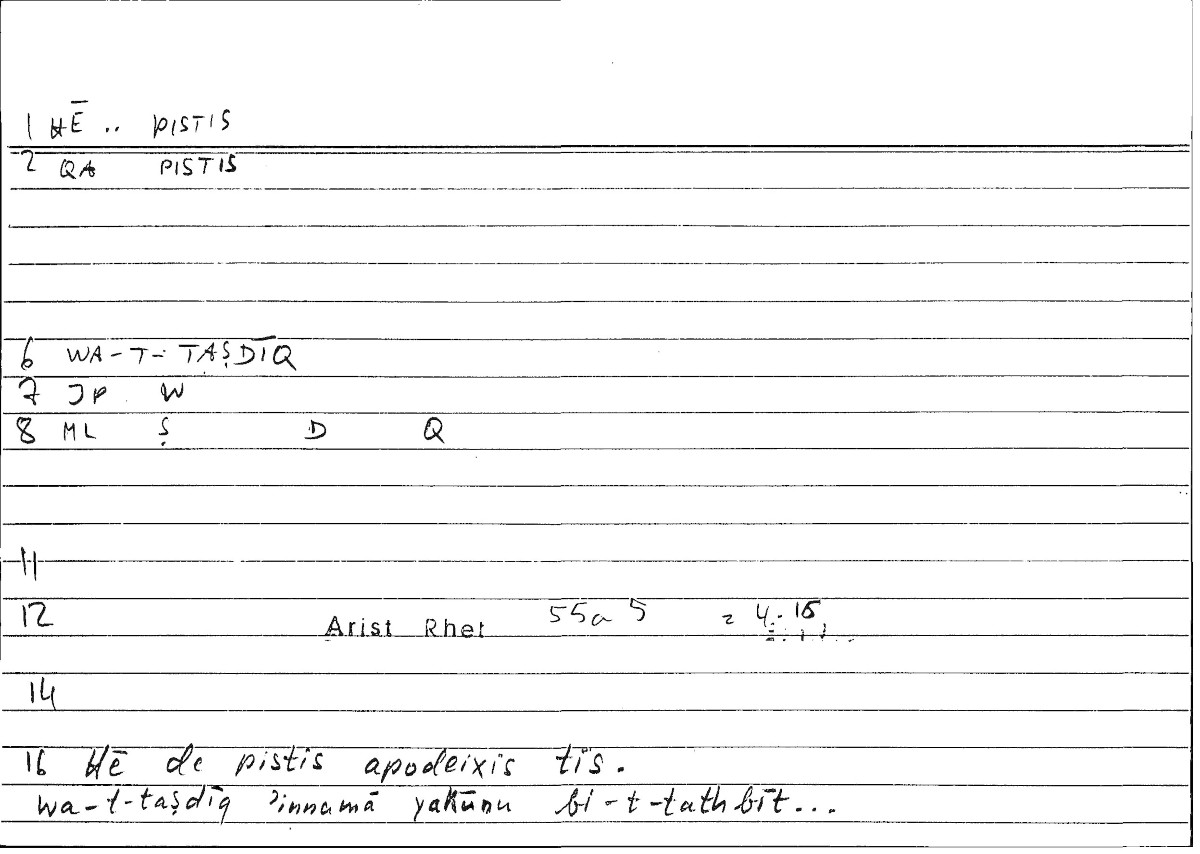 1 HĒ .. PISTIS
2 QA PISTIS
6 WA-T-TAṢDĪQ
7 JP W
8 ML Ṣ D Q
11
12 Arist Rhet 55a 5 = 4,16
14
16 Hē de pistis apodeixis tis.
wa-t-taṣdīq ʾinnamā yakūnu bi-t-tathbīt...